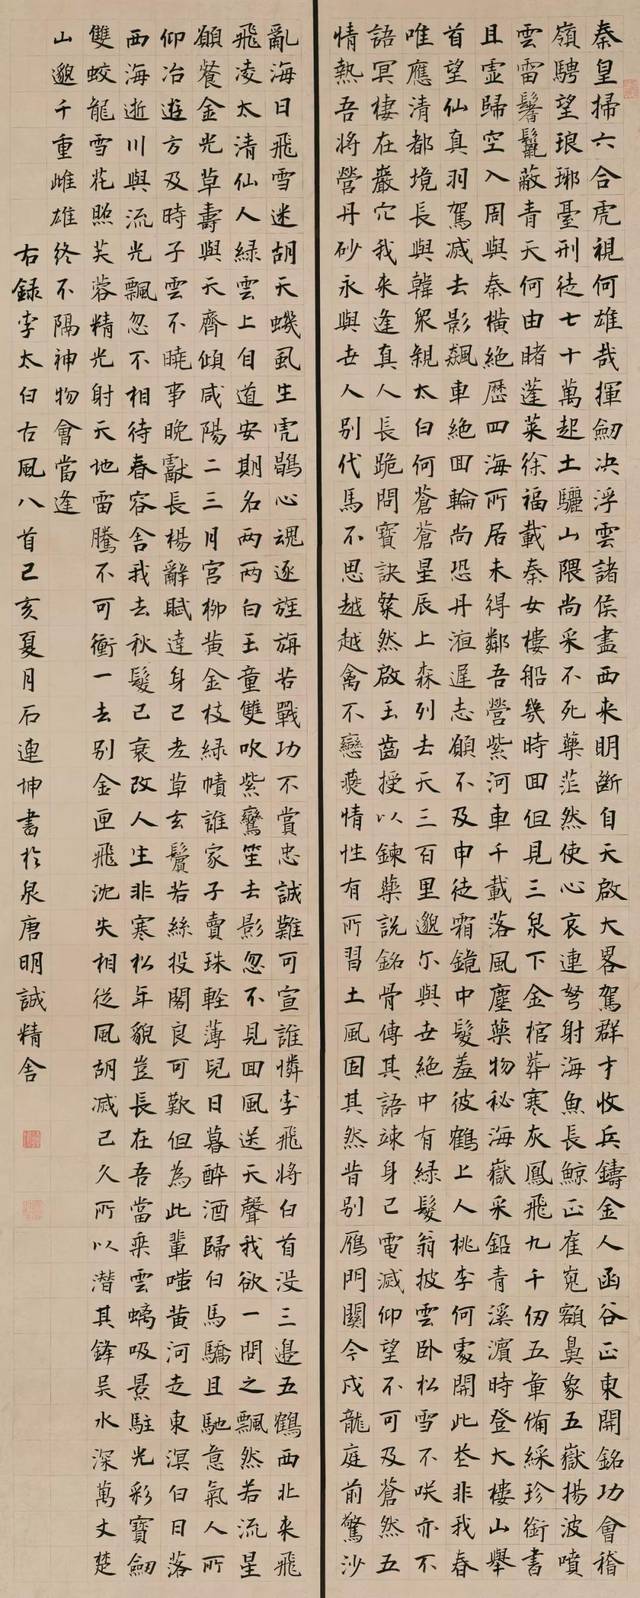 秦皇掃六合虎視何雄哉揮劒決浮雲諸侯盡西來明斷自天啟大畧駕群才收兵鑄金人函谷正東開銘功會稽
嶺騁望琅琊臺刑徒七十萬起土驪山隈尚采不死藥茫然使心哀連弩射海魚長鯨正崔嵬額鼻象五嶽揚波噴
雲雷鬐鬣蔽青天何由睹蓬萊徐福載秦女樓船幾時回但見三泉下金棺葬寒灰鳳飛九千仞五章備綵珍銜書
且虛歸空入周與秦橫絕歷四海所居未得鄰吾營紫河車千載落風塵藥物秘海嶽采鉛青溪濱時登大樓山舉
首望仙真羽駕滅去影飆車絕回輪尚恐丹液遲志願不及申徒霜鏡中髮羞彼鶴上人桃李何處開此花非我春
唯應清都境長與韓眾親太白何蒼蒼星辰上森列去天三百里邈尔與世絕中有綠髮翁披雲臥松雪不咲亦不
語冥棲在巖穴我來逢真人長跪問寶訣粲然啟玉齒授以鍊藥說銘骨傳其語竦身已電滅仰望不可及蒼然五
情熱吾將營丹砂永與世人別代馬不思越越禽不戀燕情性有所習土風固其然昔別鴈門關今戍龍庭前驚沙
亂海日飛雪迷胡天蟣虱生虎鶡心魂逐旌旗苦戰功不賞忠誠難可宣誰憐李飛將白首沒三邊五鶴西北來飛
飛凌太清仙人綠雲上自道安期名兩兩白玉童雙吹紫鸞笙去影忽不見回風送天聲我欲一問之飄然若流星
願餐金光草壽與天齊傾咸陽二三月宮柳黃金枝綠幘誰家子賣珠輕薄兒日暮醉酒歸白馬驕且馳意氣人所
仰冶遊方及時子雲不曉事晚獻長楊辭賦達身已老草玄鬢若絲投閣良可歎但為此輩嗤黃河走東溟白日落
西海逝川與流光飄忽不相待春容舍我去秋髮已衰改人生非寒松年貌豈長在吾當乘雲螭吸景駐光彩寶劒
雙蛟龍雪花照芙蓉精光射天地雷騰不可衝一去別金匣飛沈失相從風胡滅已久所以潛其鋒吳水深萬丈楚
山邈千重雌雄終不隔神物會當逢
右錄李太白古風八首己亥夏月石連坤書於泉唐明誠精舍